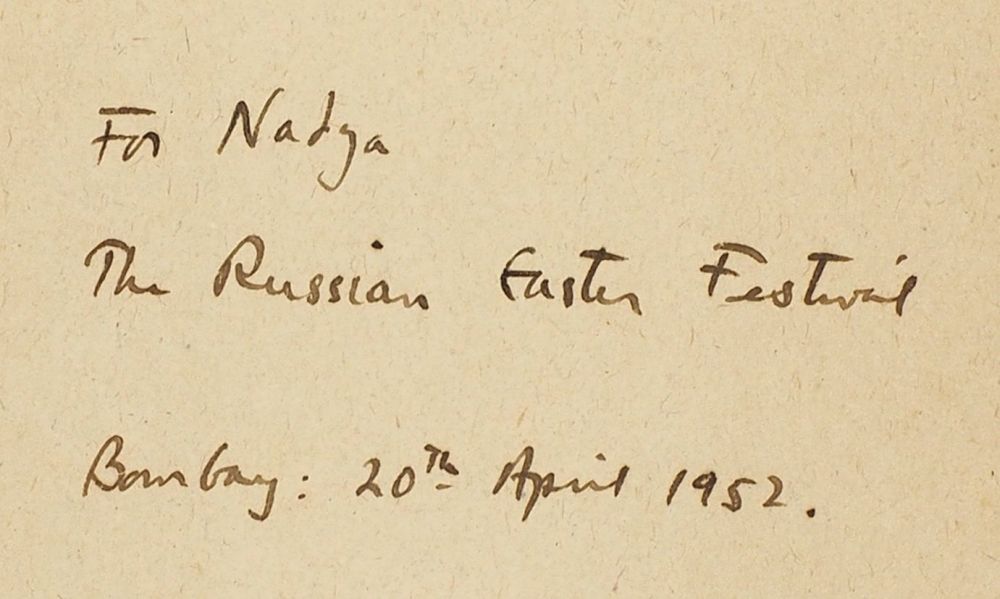 For Nadya
The Russian Easter Festival
Bombay: 20th April 1952.